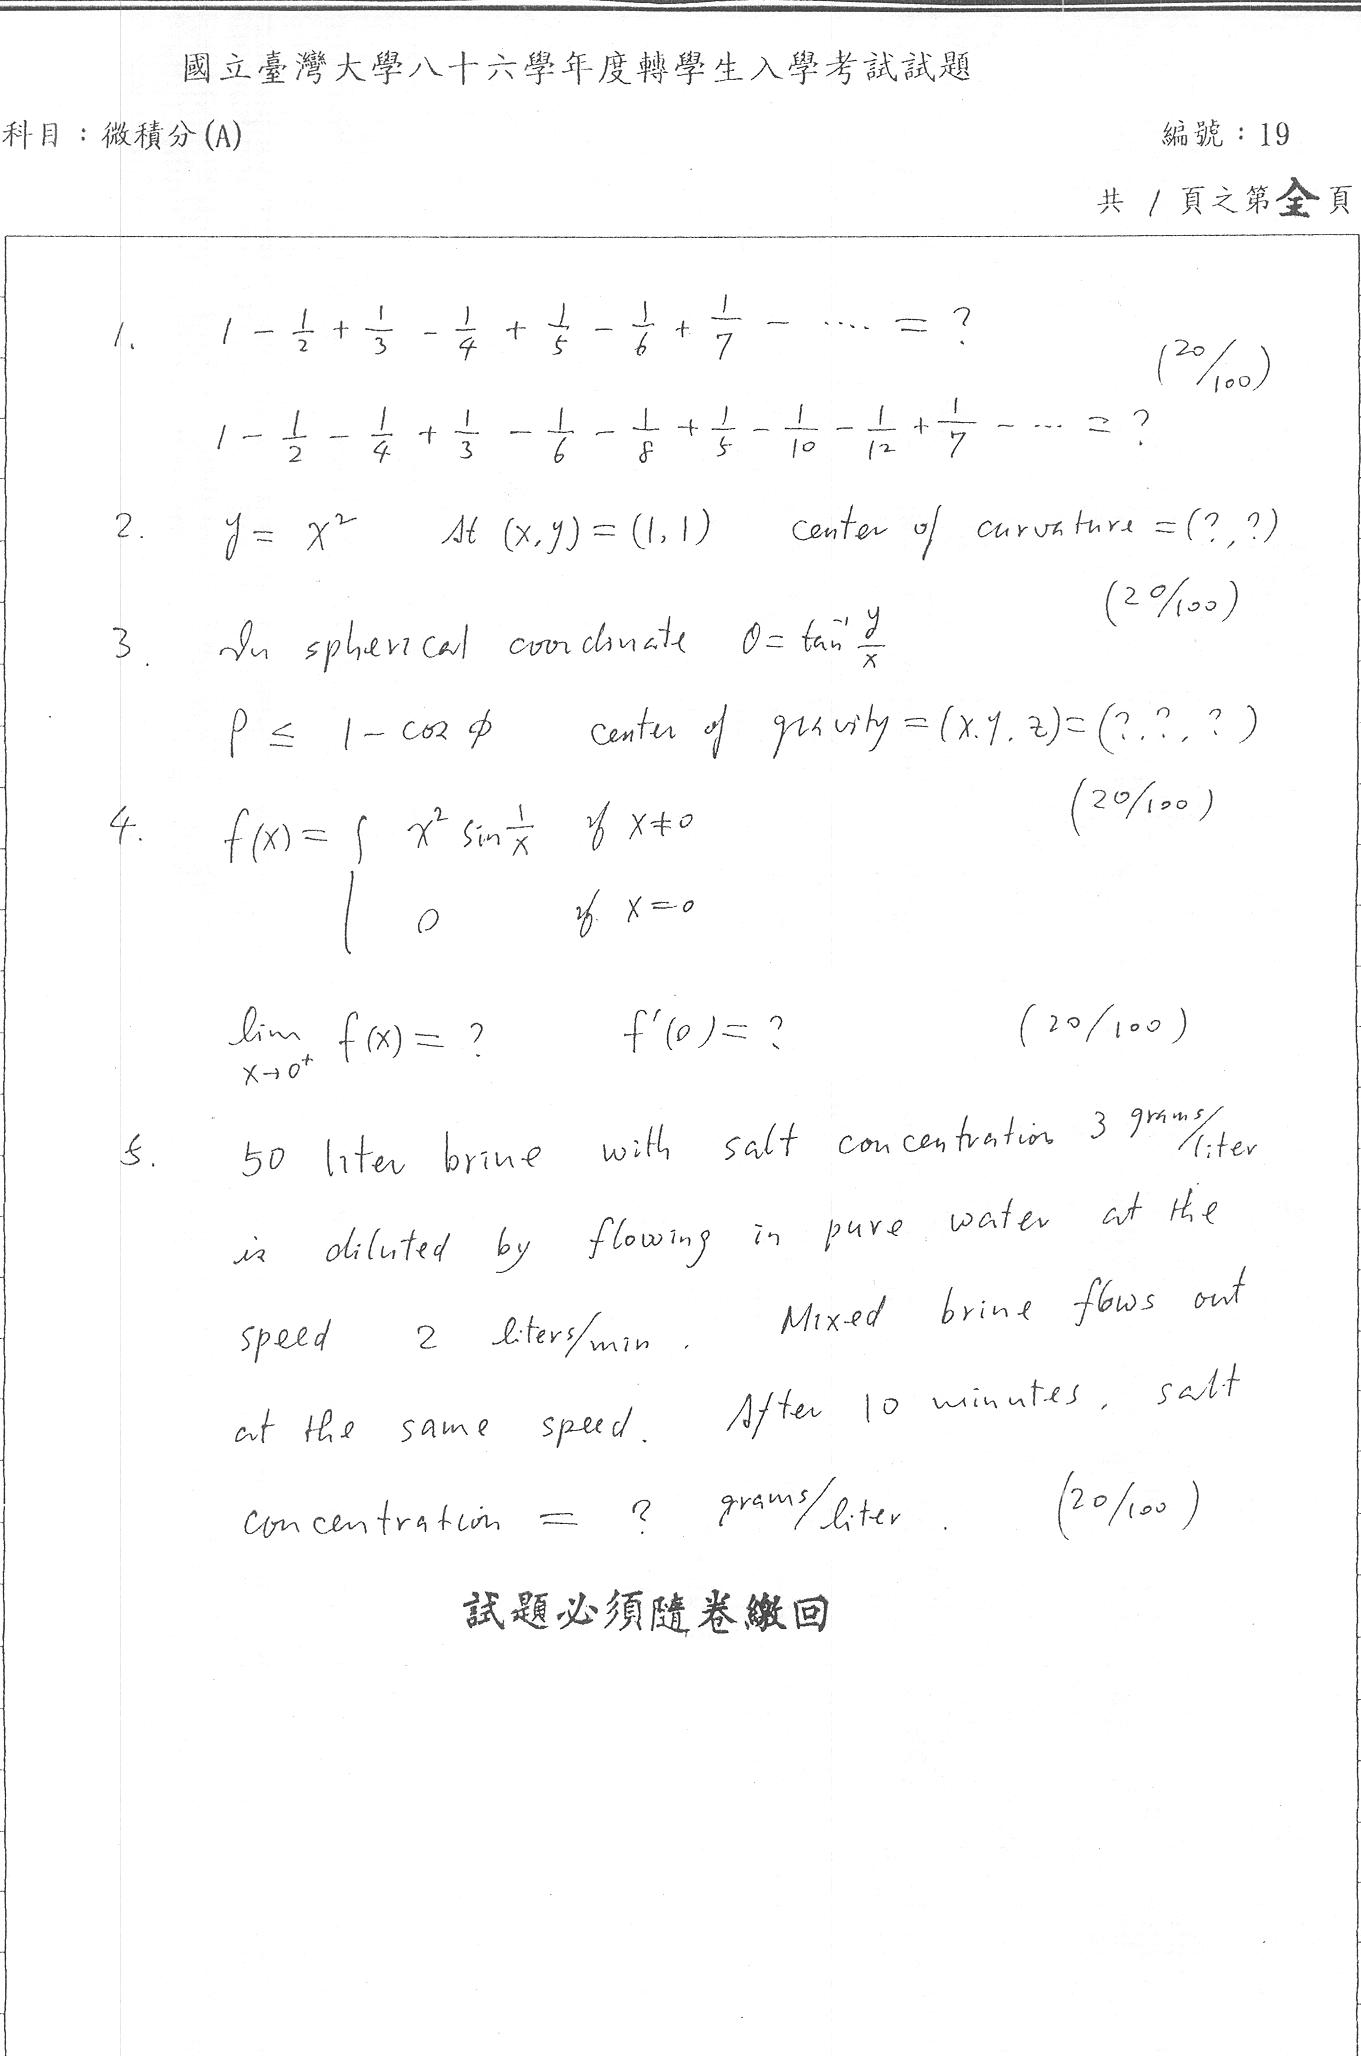 國立臺灣大學八十六學年度轉學生入學考試試題
科目：微積分(A)
編號：19
共 1 頁之第全頁
1. 1 - 1/2 + 1/3 - 1/4 + 1/5 - 1/6 + 1/7 - .... = ?
(20/100)
1 - 1/2 - 1/4 + 1/3 - 1/6 - 1/8 + 1/5 - 1/10 - 1/12 + 1/7 - ... = ?
2. y = x² At (x,y) = (1,1) center of curvature = (?,?)
(20/100)
3. In spherical coordinate θ = tan⁻¹ y/x
ρ ≤ 1 - cos φ center of gravity = (x.y.z) = (?.?.?)
(20/100)
4. f(x) = { x² sin 1/x if x≠0
0 if x=0
lim x→0⁺ f(x) = ? f'(0) = ? (20/100)
5. 50 liter brine with salt concentration 3 grams/liter
is diluted by flowing in pure water at the
speed 2 liters/min. Mixed brine flows out
at the same speed. After 10 minutes, salt
concentration = ? grams/liter. (20/100)
試題必須隨卷繳回